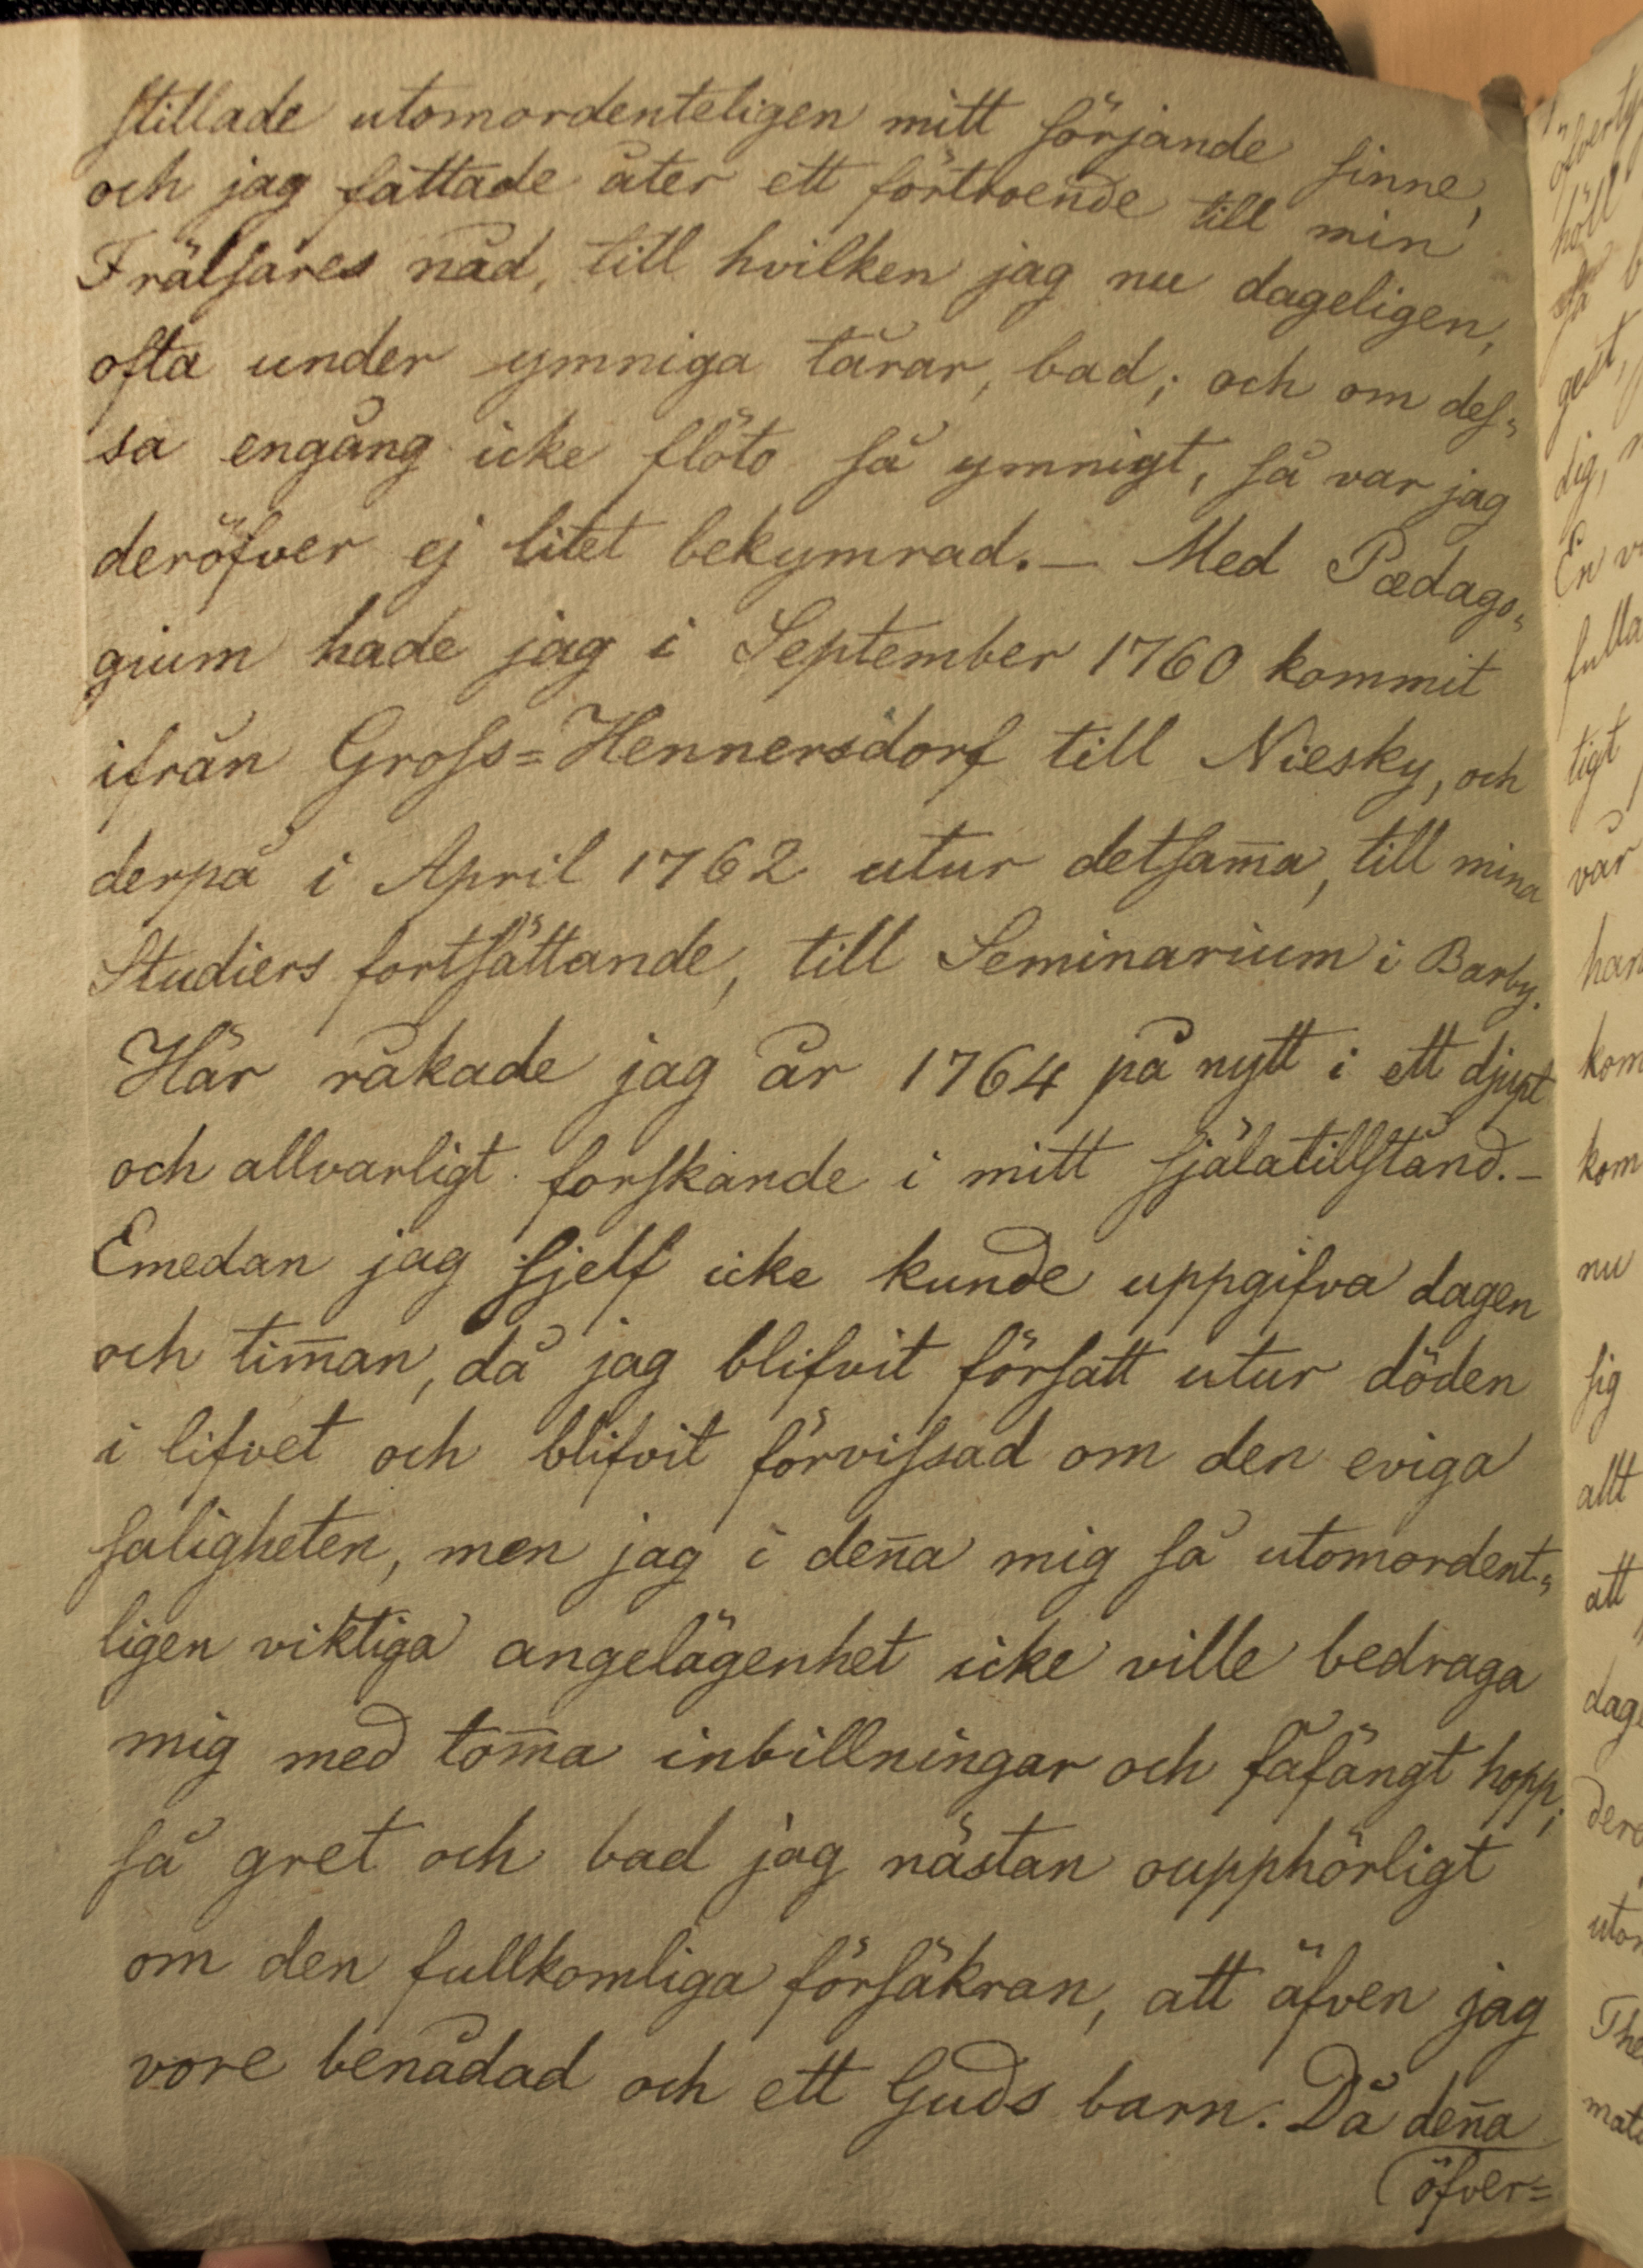 stillade utomordenteligen mitt sörjande sinne,
och jag fattade åter ett förtroende till min
Frälsares nåd, till hvilken jag nu dageligen,
ofta under ymniga tårar, bad; och om des„
sa engång icke flöto så ymnigt, så var jag
deröfver ej litet bekymrad. – Med Pædago„
gium hade jag i September 1760 kommit
ifrån Gross=Hennersdorf till Niesky, och
derpå i April 1762 utur detsam̅a, till mina
Studiers fortsättande, till Seminarium i Barby.
Här råkade jag år 1764 på nytt i ett djupt
och allvarligt forskande i mitt själatillstånd. –
Emedan jag sjelf icke kunde uppgifva dagen
och tim̅an, då jag blifvit försatt utur döden
i lifvet och blifvit förvissad om den eviga
saligheten, men jag i den̅a mig så utomordent„
ligen viktiga angelägenhet icke ville bedraga
mig med tom̅a inbillningar och fåfängt hopp;
så gret och bad jag nästan oupphörligt
om den fullkomliga försäkran, att äfven jag
vore benådad och ett Guds barn. Då den̅a
öfver=
höll
gest,
dig,
En
fulla
tigt
vår
han
kom
kom
nu
sig
allt
att
dag
The